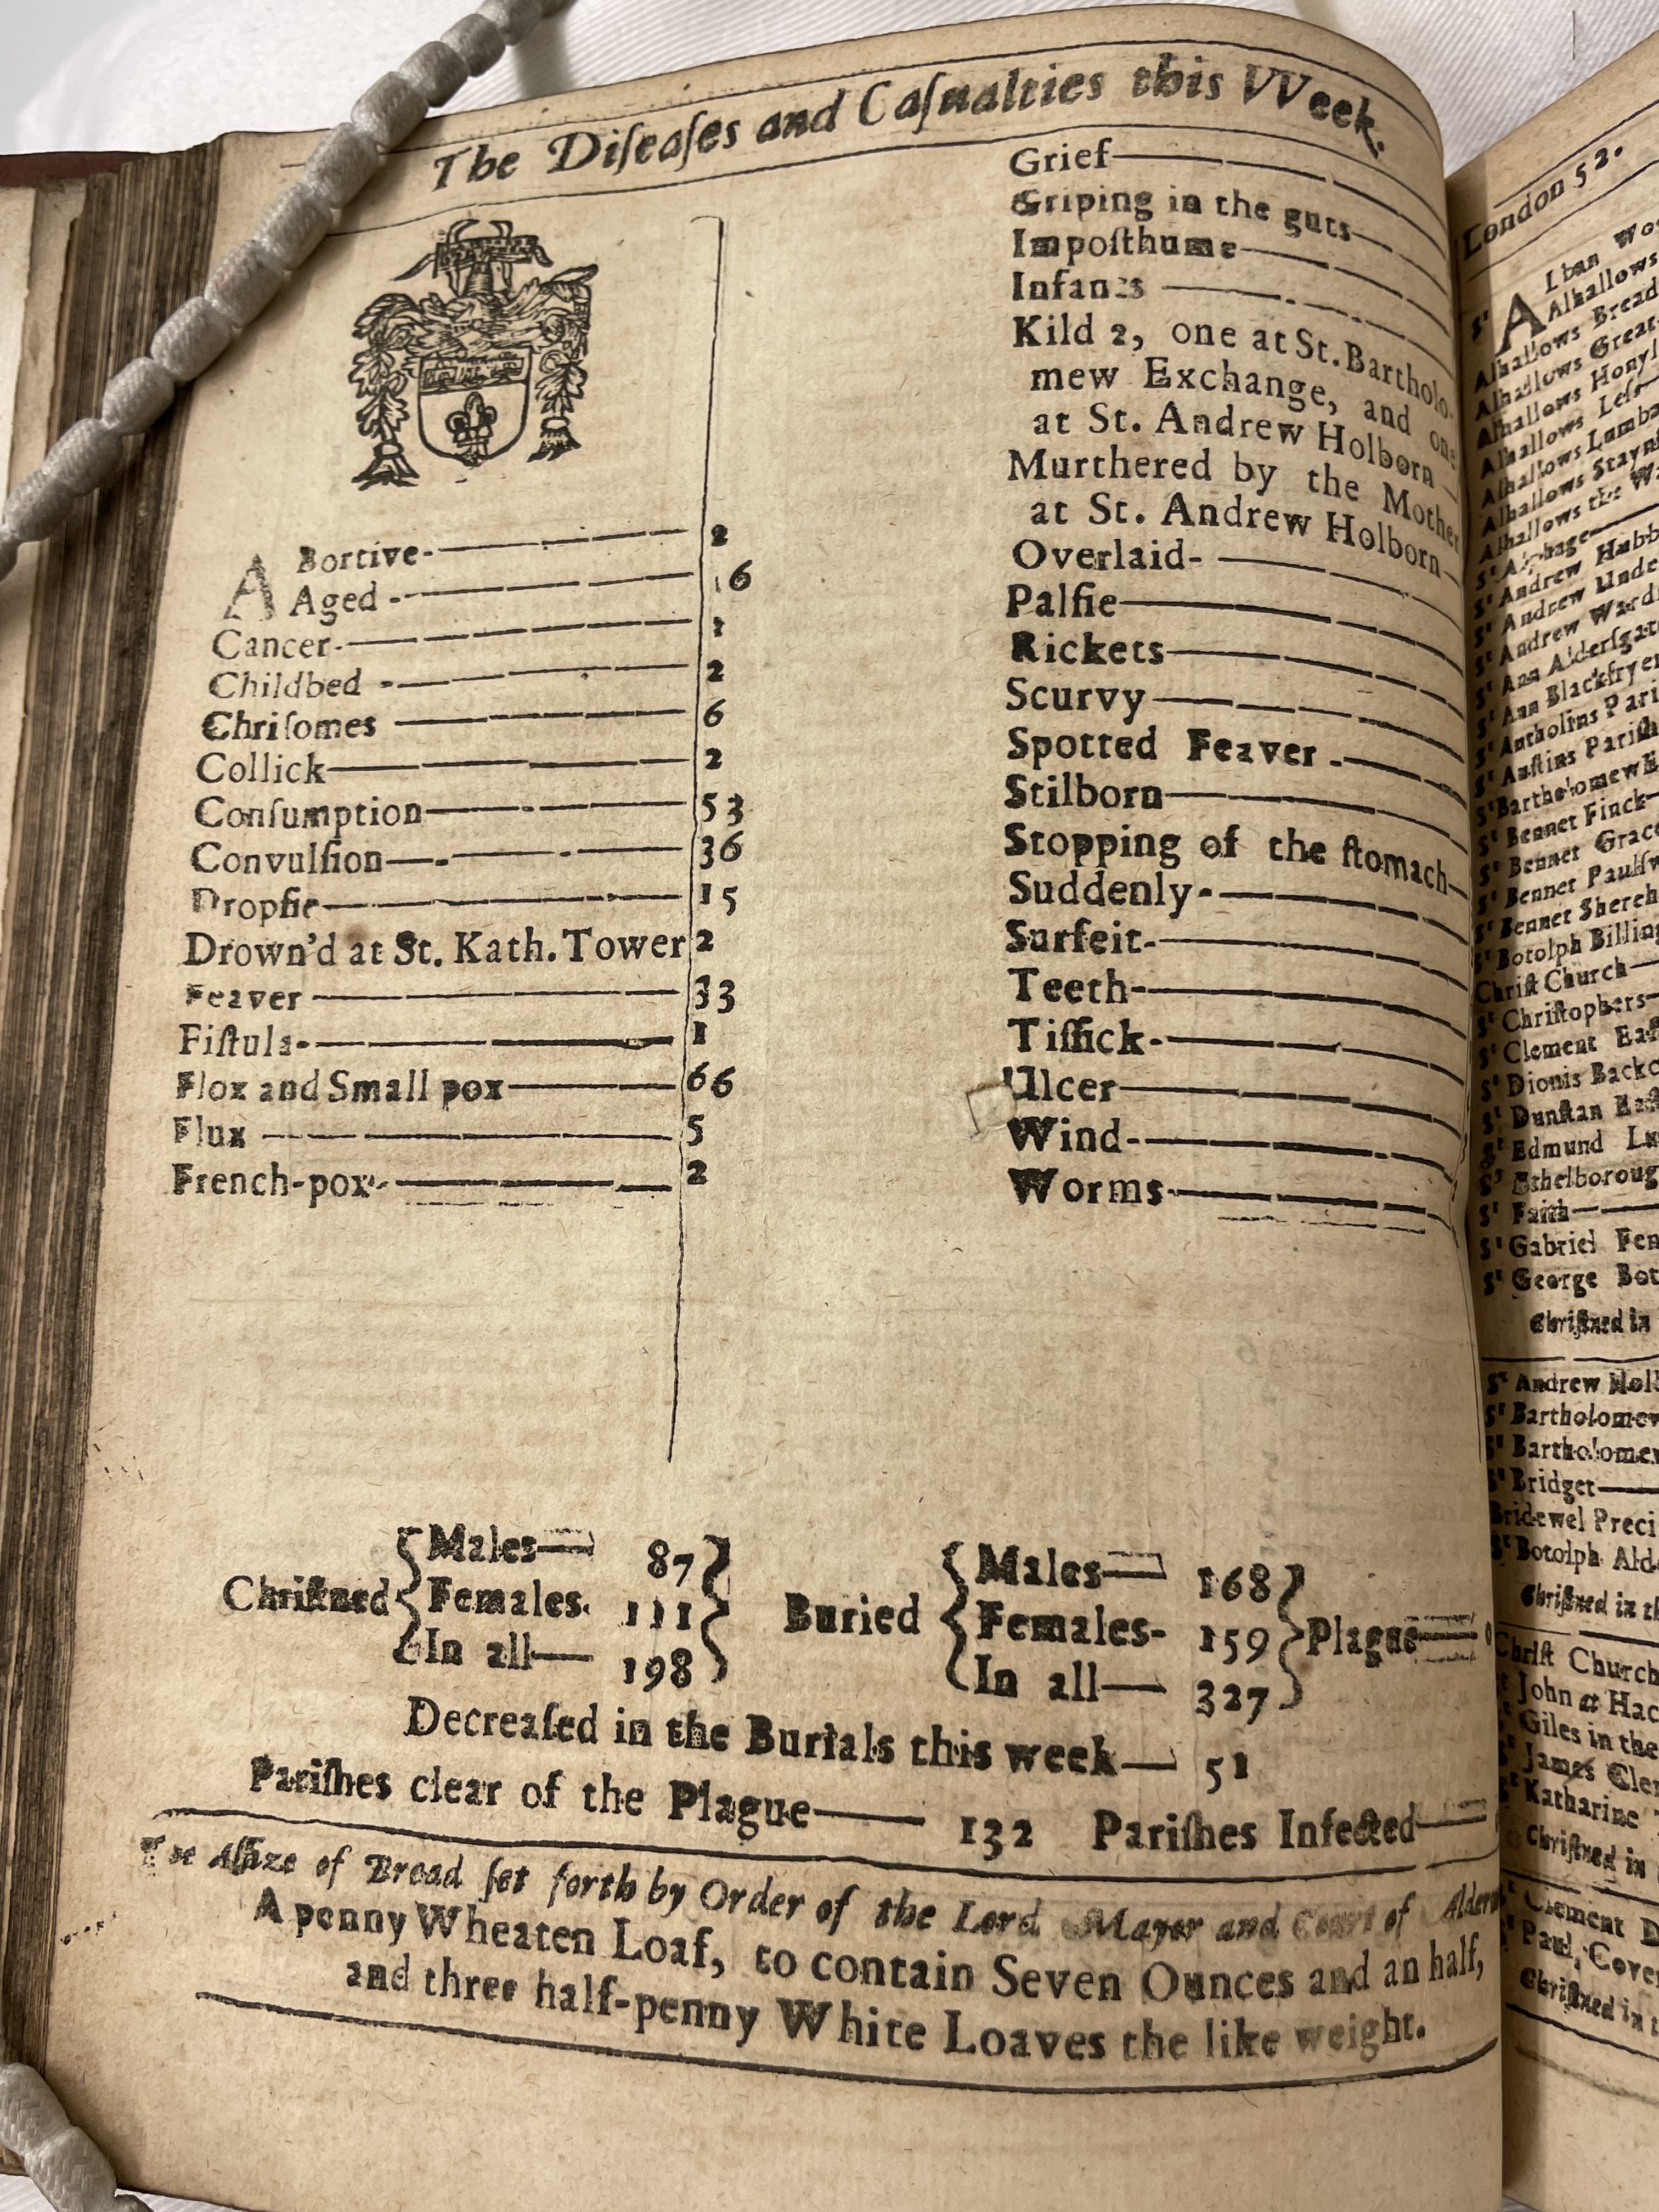 The Diſeaſes and Caſualties this VVeek.
ABortive 2
Aged 16
Cancer 1
Childbed 2
Chriſomes 6
Collick 2
Conſumption 53
Convulſion 36
Dropſie 15
Drown'd at St. Kath. Tower 2
Feaver 33
Fiſtula 1
Flox and Small pox 66
Flux 5
French-pox 2
Grief
Griping in the guts
Impoſthume
Infants
Kild 2, one at St. Bartholo-
mew Exchange, and one
at St. Andrew Holborn
Murthered by the Mother
at St. Andrew Holborn
Overlaid
Palſie
Rickets
Scurvy
Spotted Feaver
Stilborn
Stopping of the ſtomach
Suddenly
Surfeit
Teeth
Tiſſick
Ulcer
Wind
Worms
Chriſtned { Males 87
Females 111
In all 198 }
Buried { Males 168
Females 159
In all 327 } Plague
Decreaſed in the Burials this week 51
Pariſhes clear of the Plague 132 Pariſhes Infected
The Aſſize of Bread ſet forth by Order of the Lord Mayor and Court of Alderm
A penny Wheaten Loaf, to contain Seven Ounces and an half,
and three half-penny White Loaves the like weight.
London 52.
St ALban Wo
Alhallows
Alhallows Bread
Alhallows Great
Alhallows Honyl
Alhallows Leſs
Alhallows Lumba
Alhallows Stayn
Alhallows the W
St Alphage
St Andrew Hubb
St Andrew Unde
St Andrew Wardr
St Ann Alderſgat
St Ann Blackfryer
St Antholins Pari
St Auſtins Pariſh
St Bartholomew E
St Bennet Finck
St Bennet Grace
St Bennet Paulſw
St Bennet Shereh
St Botolph Billing
Chriſt Church
St Chriſtophers
St Clement Eaſt
St Dionis Backc
St Dunſtan Eaſt
St Edmund Lu
St Ethelboroug
St Faith
St Gabriel Fen
St George Bot
Chriſtned in
St Andrew Holb
St Bartholomew
St Bartholomew
St Bridget
Bridewel Preci
St Botolph Alde
Chriſtned in th
Chriſt Church
St John at Hac
St Giles in the
St James Cler
St Katharine
Chriſtned in
St Clement D
St Paul, Cove
Chriſtned in t